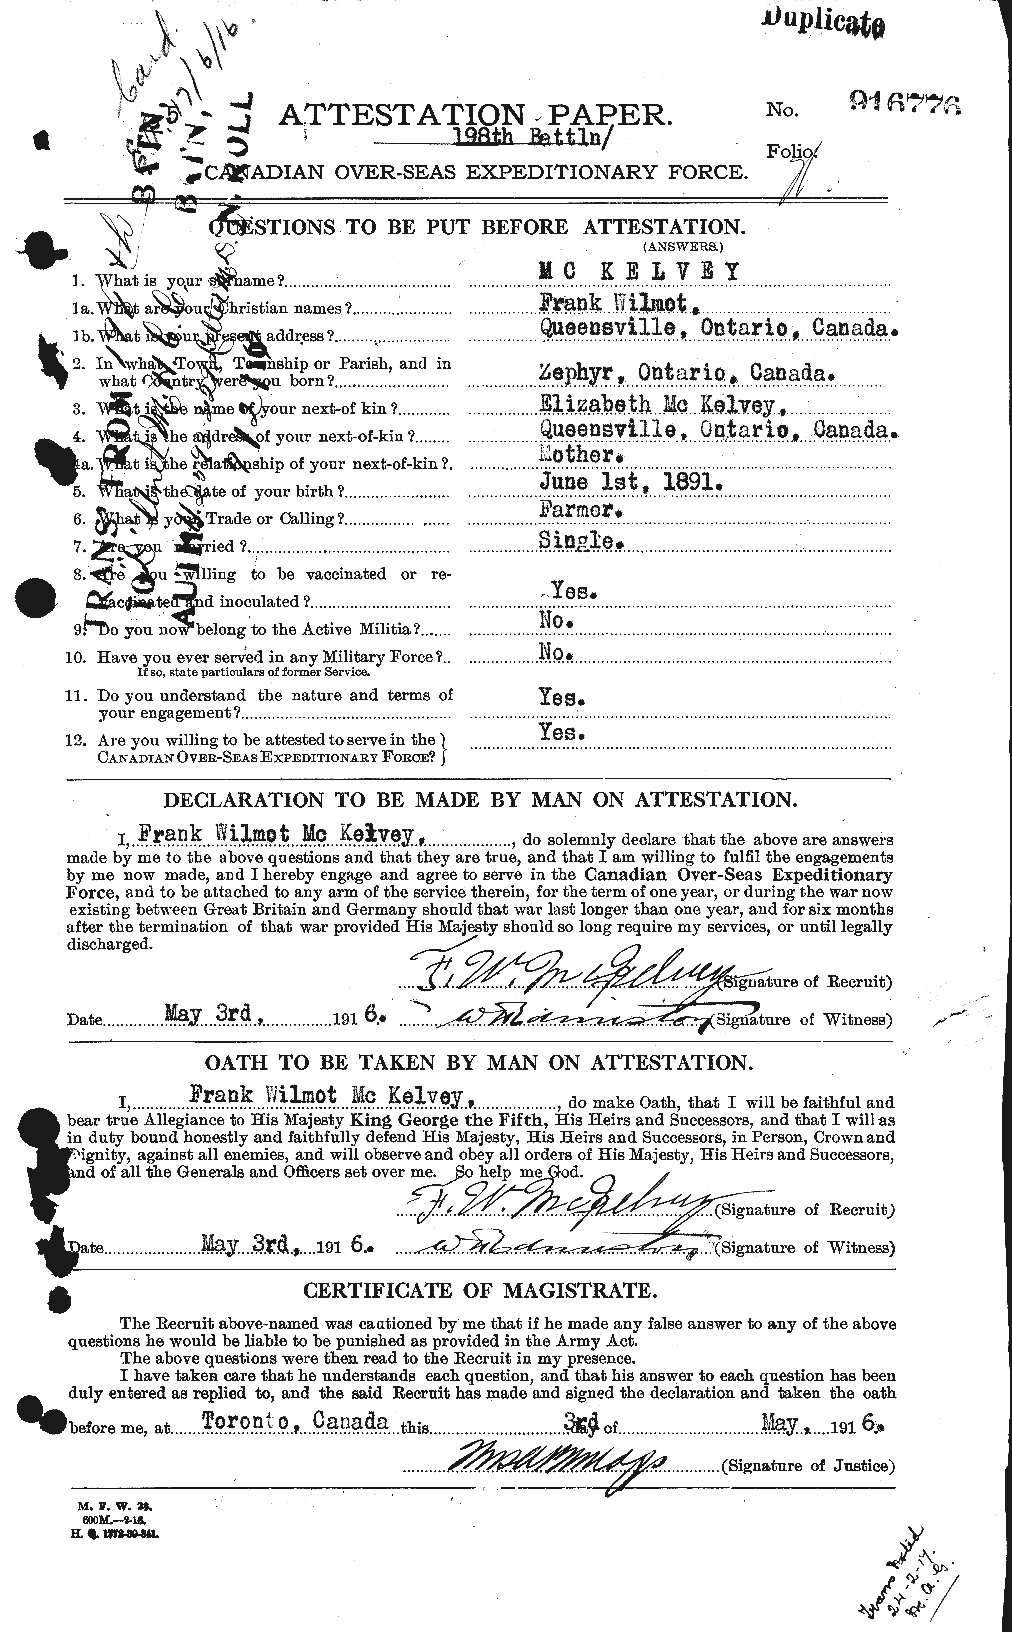 Duplicate
ATTESTATION PAPER.
No. 916776
198th Battln/
Folio.
CANADIAN OVER-SEAS EXPEDITIONARY FORCE.
QUESTIONS TO BE PUT BEFORE ATTESTATION.
(ANSWERS.)
1. What is your surname? MC KELVEY
1a. What are your Christian names? Frank Wilmot,
1b. What is your present address? Queensville, Ontario, Canada.
2. In what Town, Township or Parish, and in
what Country were you born? Zephyr, Ontario, Canada.
3. What is the name of your next-of kin? Elizabeth Mc Kelvey,
4. What is the address of your next-of-kin? Queensville, Ontario, Canada.
4a. What is the relationship of your next-of-kin? Mother.
5. What is the date of your birth? June 1st, 1891.
6. What is your Trade or Calling? Farmer.
7. Are you married? Single.
8. Are you willing to be vaccinated or re-
vaccinated and inoculated? Yes.
9. Do you now belong to the Active Militia? No.
10. Have you ever served in any Military Force? No.
If so, state particulars of former Service.
11. Do you understand the nature and terms of
your engagement? Yes.
12. Are you willing to be attested to serve in the
CANADIAN OVER-SEAS EXPEDITIONARY FORCE? Yes.
TRANS FROM
DECLARATION TO BE MADE BY MAN ON ATTESTATION.
I, Frank Wilmot Mc Kelvey, , do solemnly declare that the above are answers
made by me to the above questions and that they are true, and that I am willing to fulfil the engagements
by me now made, and I hereby engage and agree to serve in the Canadian Over-Seas Expeditionary
Force, and to be attached to any arm of the service therein, for the term of one year, or during the war now
existing between Great Britain and Germany should that war last longer than one year, and for six months
after the termination of that war provided His Majesty should so long require my services, or until legally
discharged.
F. W. McKelvey (Signature of Recruit)
Date May 3rd, 1916. (Signature of Witness)
OATH TO BE TAKEN BY MAN ON ATTESTATION.
I, Frank Wilmot Mc Kelvey, , do make Oath, that I will be faithful and
bear true Allegiance to His Majesty King George the Fifth, His Heirs and Successors, and that I will as
in duty bound honestly and faithfully defend His Majesty, His Heirs and Successors, in Person, Crown and
Dignity, against all enemies, and will observe and obey all orders of His Majesty, His Heirs and Successors,
and of all the Generals and Officers set over me. So help me God.
F. W. McKelvey (Signature of Recruit)
Date May 3rd, 1916. (Signature of Witness)
CERTIFICATE OF MAGISTRATE.
The Recruit above-named was cautioned by me that if he made any false answer to any of the above
questions he would be liable to be punished as provided in the Army Act.
The above questions were then read to the Recruit in my presence.
I have taken care that he understands each question, and that his answer to each question has been
duly entered as replied to, and the said Recruit has made and signed the declaration and taken the oath
before me, at Toronto, Canada this 3rd day of May, 1916.
(Signature of Justice)
M. F. W. 23.
600M.—2-16.
H. Q. 1772-39-241.
24-2-17.